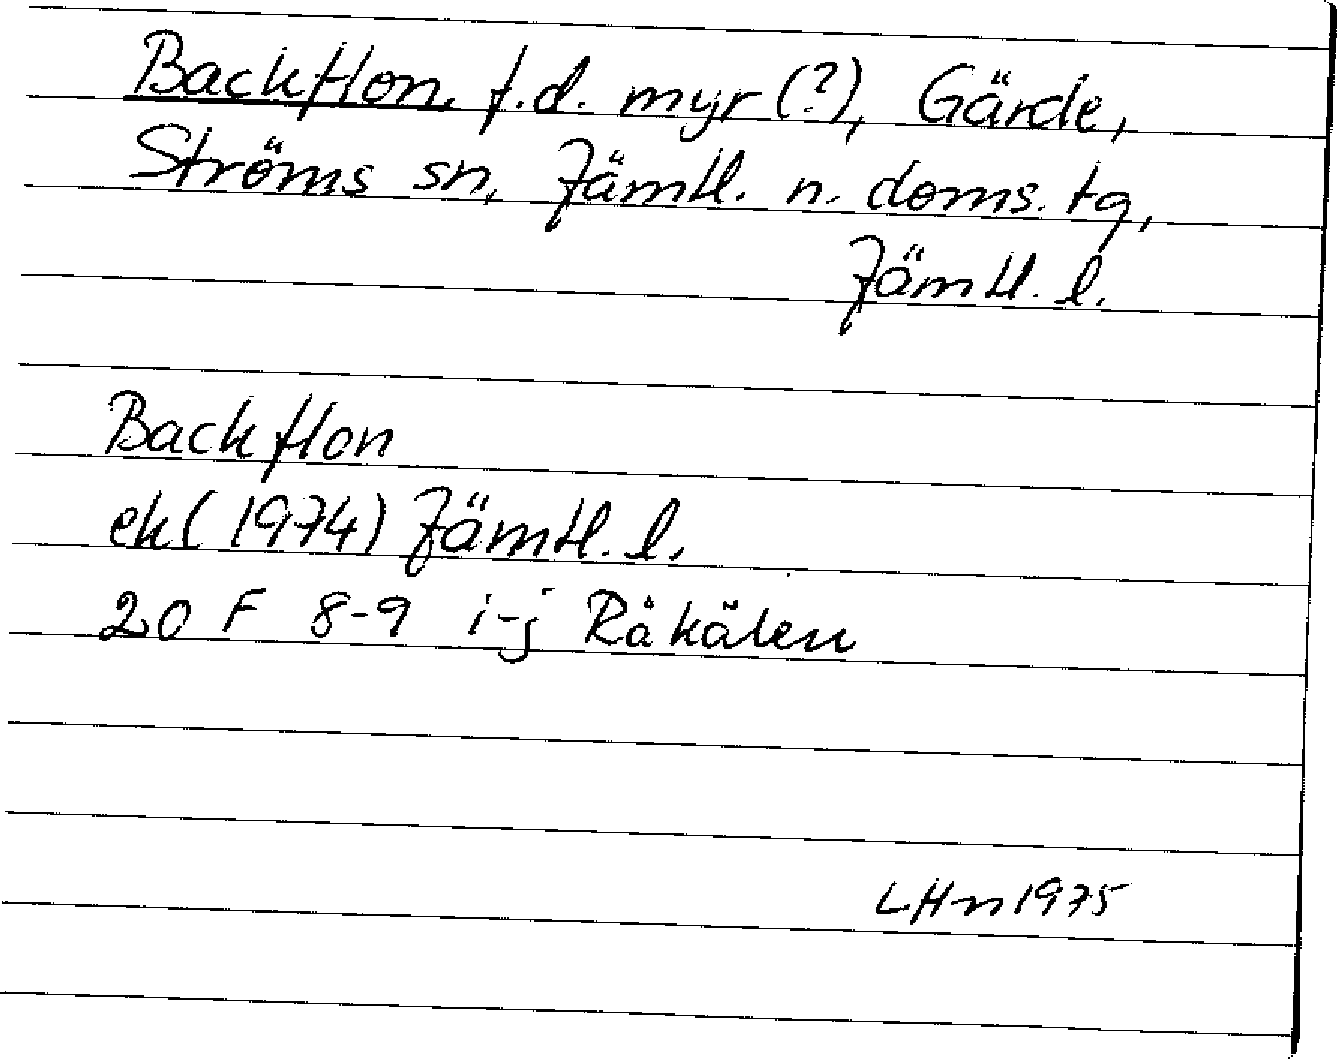 Backflon, f.d. myr (?), Gärde,
Ströms sn, Jämtl. n. doms. tg,
Jämtl. l.
Backflon
ek (1974) Jämtl. l.
20 F 8-9 i-j Råkälen
LHm 1975